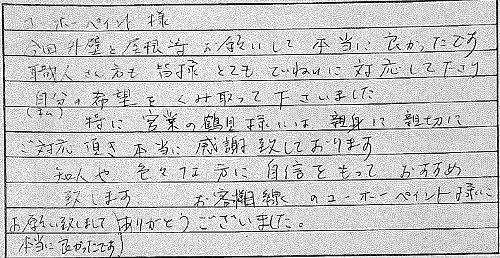 ユーホーペイント様
今回外壁と屋根等お願いして本当に良かったです
職人さん方も皆様とてもていねいに対応して下さり
自分の希望をくみ取って下さいました
(私)
特に営業の鶴見様には親身に親切に
ご対応頂き本当に感謝致しております
知人や色々な方に自信をもっておすすめ
致します お客様目線のユーホーペイント様に
お願い致しまして ありがとうございました。
本当に良かったです